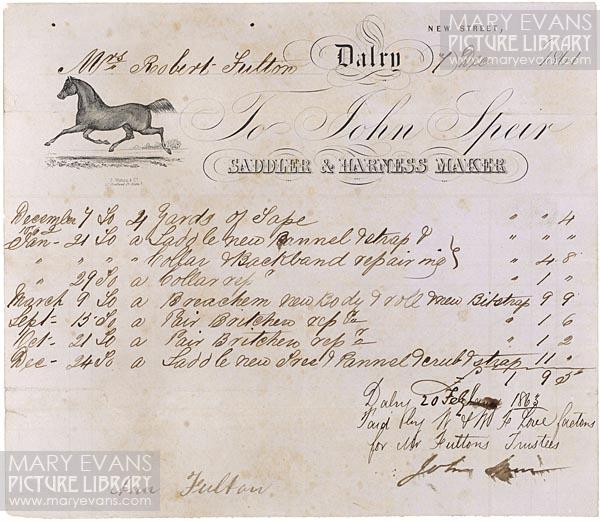 MARY EVANS
PICTURE LIBRARY
www.maryevans.com
MARY EVANS
PICTURE LIBRARY
www.maryevans.com
NEW STREET,
Mrs Robert Fulton Dalry
To John Speir
SADDLER & HARNESS MAKER
December 7 To 2 Yards of Tape " " 4
Jan - 21 To a Saddle new Pannel & strap & " " "
" " " Collar & Backband repairing " 4 8
" 29 To a Collar rep " 1 "
March 9 To a Breachem new body & roll & new Bitstrap 9 9
Sept - 15 To a Pair Britchen rep " 1 6
21 To a Pair Britchen rep " 1 2
Dec - 24 To a Saddle new Pannel & crub & strap 11 "
£ 1 9 5
Dalry 20 1863
Paid By factors
for Mr Fultons Trustees
John
MARY EVANS
PICTURE LIBRARY
www.maryevans.com
Fulton
MARY EVANS
PICTURE LIBRARY
www.maryevans.com